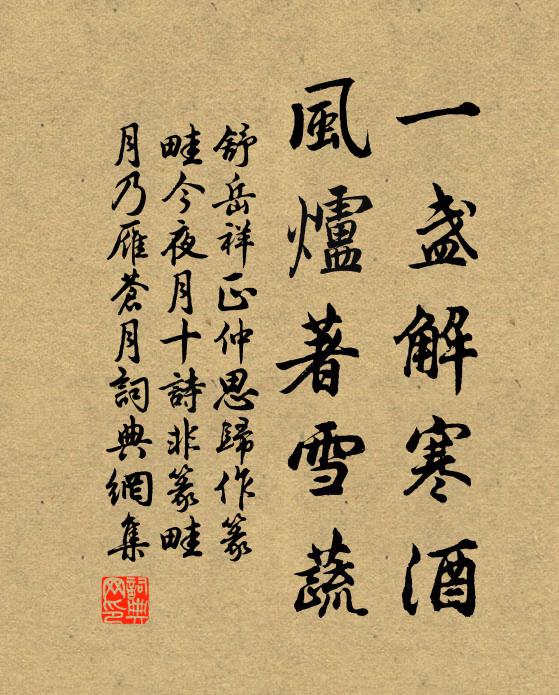 一盞解寒酒
風爐著雪蔬
舒岳祥正仲思歸作篆
畦今夜月十詩非篆畦
月乃雁蒼月詞典網集
詞典
网印